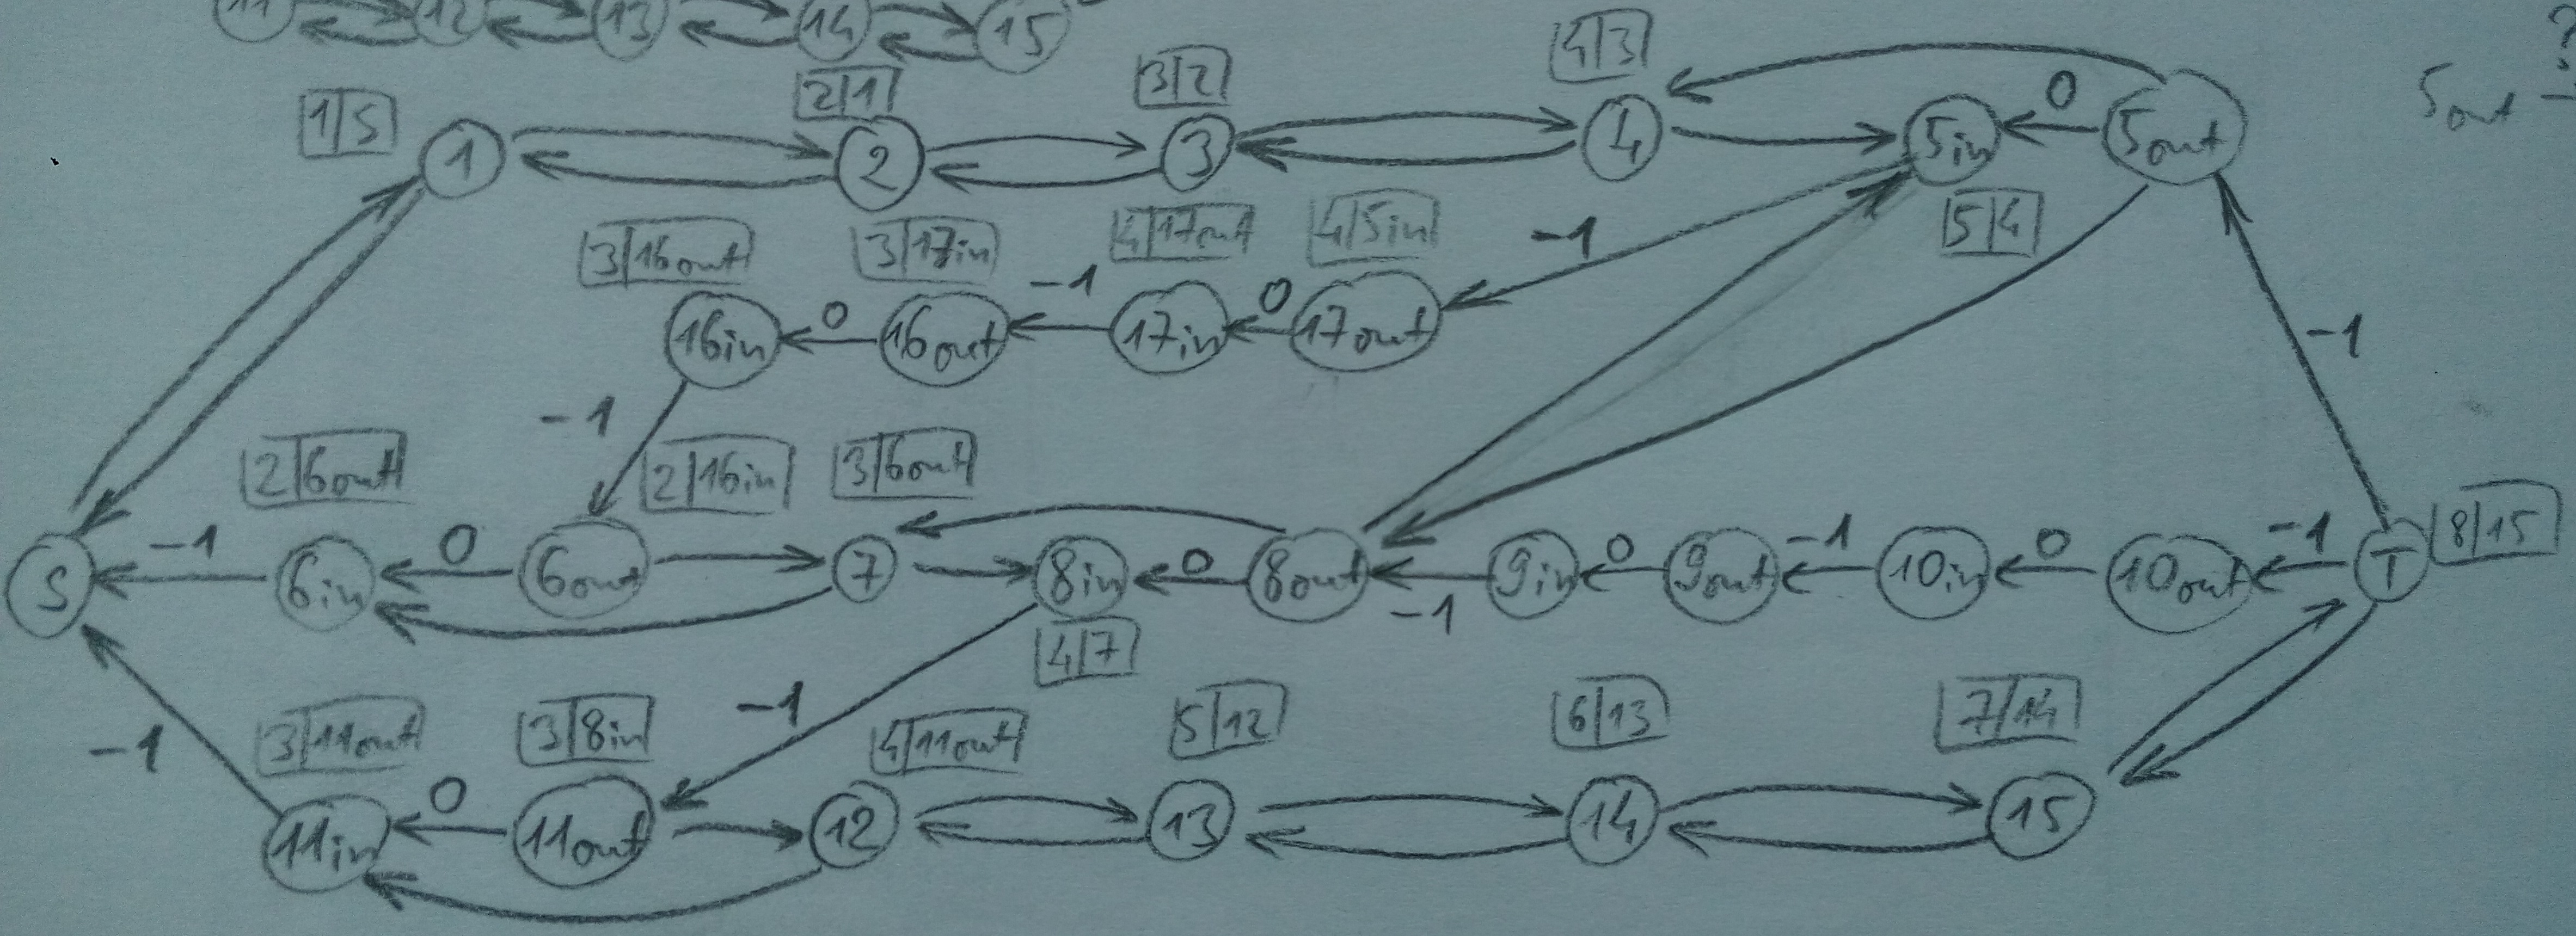 11 12 13 14 15
?
4|3
1|S 2|1 3|2
1 2 3 4 5in 0 5out 5out
3|16out 3|17in 4|17out 4|5in -1 5|4
-1 0
16in 0 16out 17in 17out -1
-1
2|6out 2|16in 3|6out 8|15
S -1 6in 0 6out 7 8in 0 8out -1 9in 0 9out -1 10in 0 10out -1 T
4|7
-1 3|11out 3|8in -1 4|11out 5|12 6|13 7|14
11in 0 11out 12 13 14 15